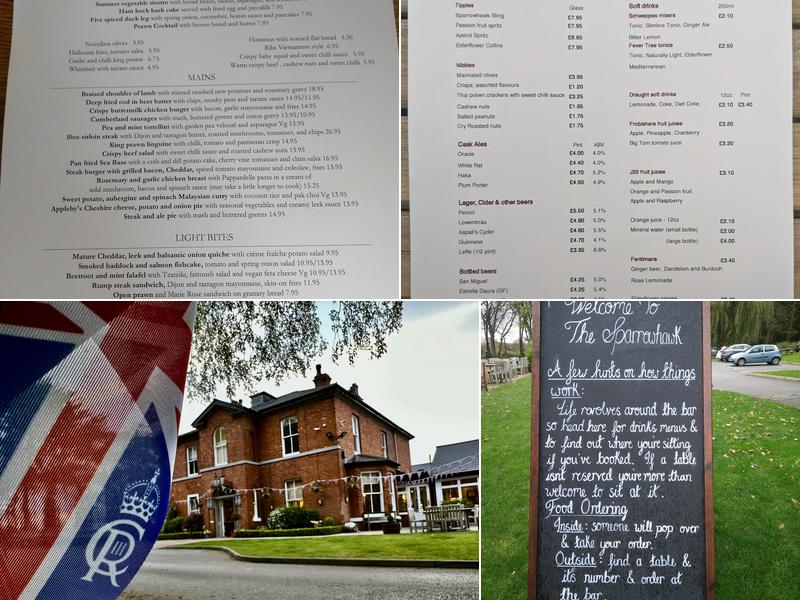 Summer vegetable risotto with broad beans, radish, asparagus,
Ham hock hash cake served with fried egg and piccalilli 7.95
Five spiced duck leg with spring onion, cucumber, hoisin sauce and pancakes 7.95
Prawn Cocktail with brown bread and butter 7.95
Nocellara olives 3.95
Halloumi fries, tomato salsa 5.95
Garlic and chilli king prawn 6.75
Whitebait with tartare sauce 4.95
Hummus with toasted flat bread 4.50
Ribs Vietnamese style 6.95
Crispy baby squid and sweet chilli sauce 5.95
Warm crispy beef , cashew nuts and sweet chilli sauce 5.95
MAINS
Braised shoulder of lamb with minted crushed new potatoes and rosemary gravy 18.95
Deep fried cod in beer batter with chips, mushy peas and tartare sauce 14.95/11.95
Crispy buttermilk chicken burger with bacon, garlic mayonnaise and fries 14.95
Cumberland sausages with mash, buttered greens and onion gravy 13.95/10.95
Pea and mint tortellini with garden pea velouté and asparagus Vg 13.95
10oz sirloin steak with Dijon and tarragon butter, roasted mushrooms, tomatoes, and chips 26.95
King prawn linguine with chilli, tomato and parmesan crisp 14.95
Crispy beef salad with sweet chilli sauce and roasted cashew nuts 15.95
Pan fried Sea Bass with a crab and dill potato cake, cherry vine tomatoes and clam salsa 16.95
Steak burger with grilled bacon, Cheddar, spiced tomato mayonnaise and coleslaw, fries 13.95
Rosemary and garlic chicken breast with Pappardelle pasta in a cream of
wild mushroom, bacon and spinach sauce (may take a little longer to cook) 15.25
Sweet potato, aubergine and spinach Malaysian curry with coconut rice and pak choi Vg 13.95
Appleby's Cheshire cheese, potato and onion pie with seasonal vegetables and creamy leek sauce 13.95
Steak and ale pie with mash and buttered greens 14.95
LIGHT BITES
Mature Cheddar, leek and balsamic onion quiche with crème fraîche potato salad 9.95
Smoked haddock and salmon fishcake, tomato and spring onion salad 10.95/13.95
Beetroot and mint falafel with Tzatziki, fattoush salad and vegan feta cheese Vg 10.95/13.95
Rump steak sandwich, Dijon and tarragon mayonnaise, skin-on fries 11.95
Open prawn and Marie Rose sandwich on granary bread 7.95
Tipples Glass
Sparrowhawk Sling £7.95
Passion fruit spritz £7.95
Aperol Spritz £8.65
Elderflower Collins £7.95
Nibbles
Marinated olives £3.95
Crisps, assorted flavours £1.20
Thai prawn crackers with sweet chilli sauce £3.25
Cashew nuts £1.95
Salted peanuts £1.75
Cry Roasted nuts £1.75
Cask Ales Pint ABV
Oracle £4.00 4.0%
White Rat £4.40 4.0%
Haka £4.70 5.2%
Plum Porter £4.50 4.9%
Lager, Cider & other beers
Peroni £5.50 5.1%
Lowenbrau £4.90 5.0%
Aspall's Cyder £4.60 5.5%
Guinness £4.70 4.1%
Leffe (1/2 pint) £3.35 6.6%
Bottled beers
San Miguel £4.25 5.0%
Estrella Daura (GF) £4.25 5.4%
Soft drinks 200ml
Schweppes mixers £2.10
Tonic, Slimline Tonic, Ginger Ale
Bitter Lemon
Fever Tree tonics £2.50
Tonic, Naturally Light, Elderflower,
Mediterranean
Draught soft drinks 12oz Pint
Lemonade, Coke, Diet Coke, £2.10 £3.40
Frobishers fruit juices £3.20
Apple, Pineapple, Cranberry
Big Tom tomato juice £3.20
J20 fruit juices £3.10
Apple and Mango
Orange and Passion fruit
Apple and Raspberry
Orange juice - 12oz £2.10
Mineral water (small bottle) £2.00
(large bottle) £4.00
Fentimans £3.40
Ginger beer, Dandelion and Burdoch
Rose Lemonade
Welcome To
The Sparrowhawk
A few hints on how things
work:
Life revolves around the bar
so head here for drinks menus &
to find out where you're sitting
if you've booked. If a table
isnt reserved you're more than
welcome to sit at it.
Food Ordering
Inside: someone will pop over
& take your order.
Outside: find a table &
its number & order at
the bar.